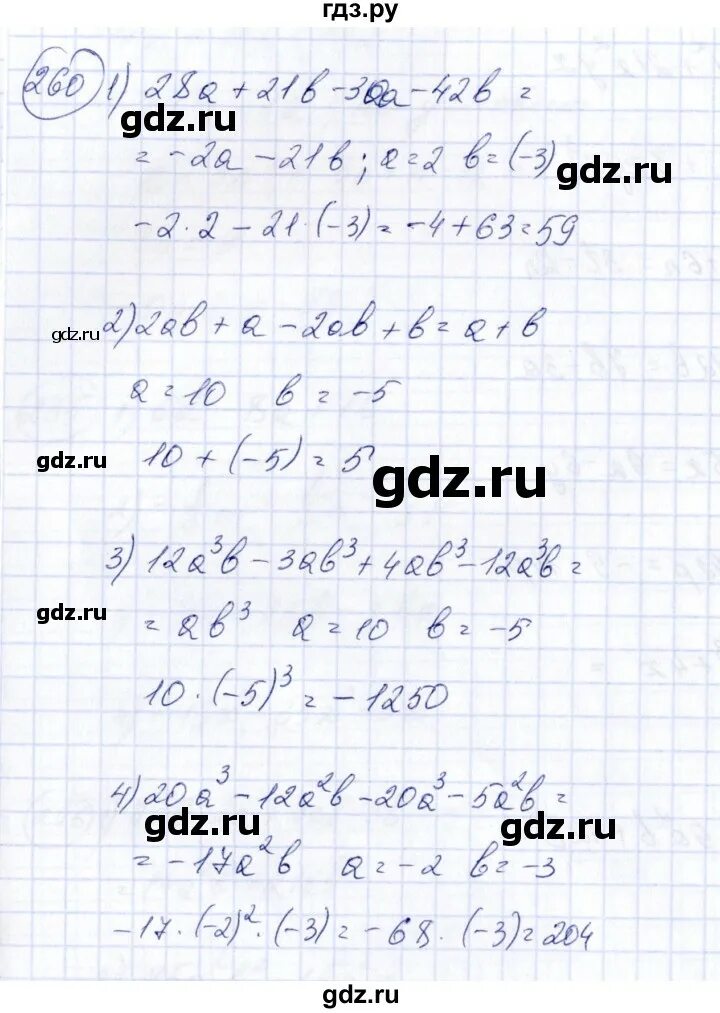 гдз.ру
260 1) 28a + 21b - 30a - 42b =
gdz.ru
= -2a - 21b ; a = 2 b = (-3)
gdz.ru
-2 · 2 - 21 · (-3) = -4 + 63 = 59
gdz.ru
2) 2ab + a - 2ab + b = a + b
a = 10 b = -5
gdz.ru
10 + (-5) = 5
gdz.ru
3) 12a³b - 3ab³ + 4ab³ - 12a³b =
gdz.ru
= ab³ a = 10 b = -5
10 · (-5)³ = -1250
4) 20a³ - 12a²b - 20a³ - 5a²b =
gdz.ru
gdz.ru
= -17a²b a = -2 b = -3
-17 · (-2)² · (-3) = -68 · (-3) = 204
gdz.ru